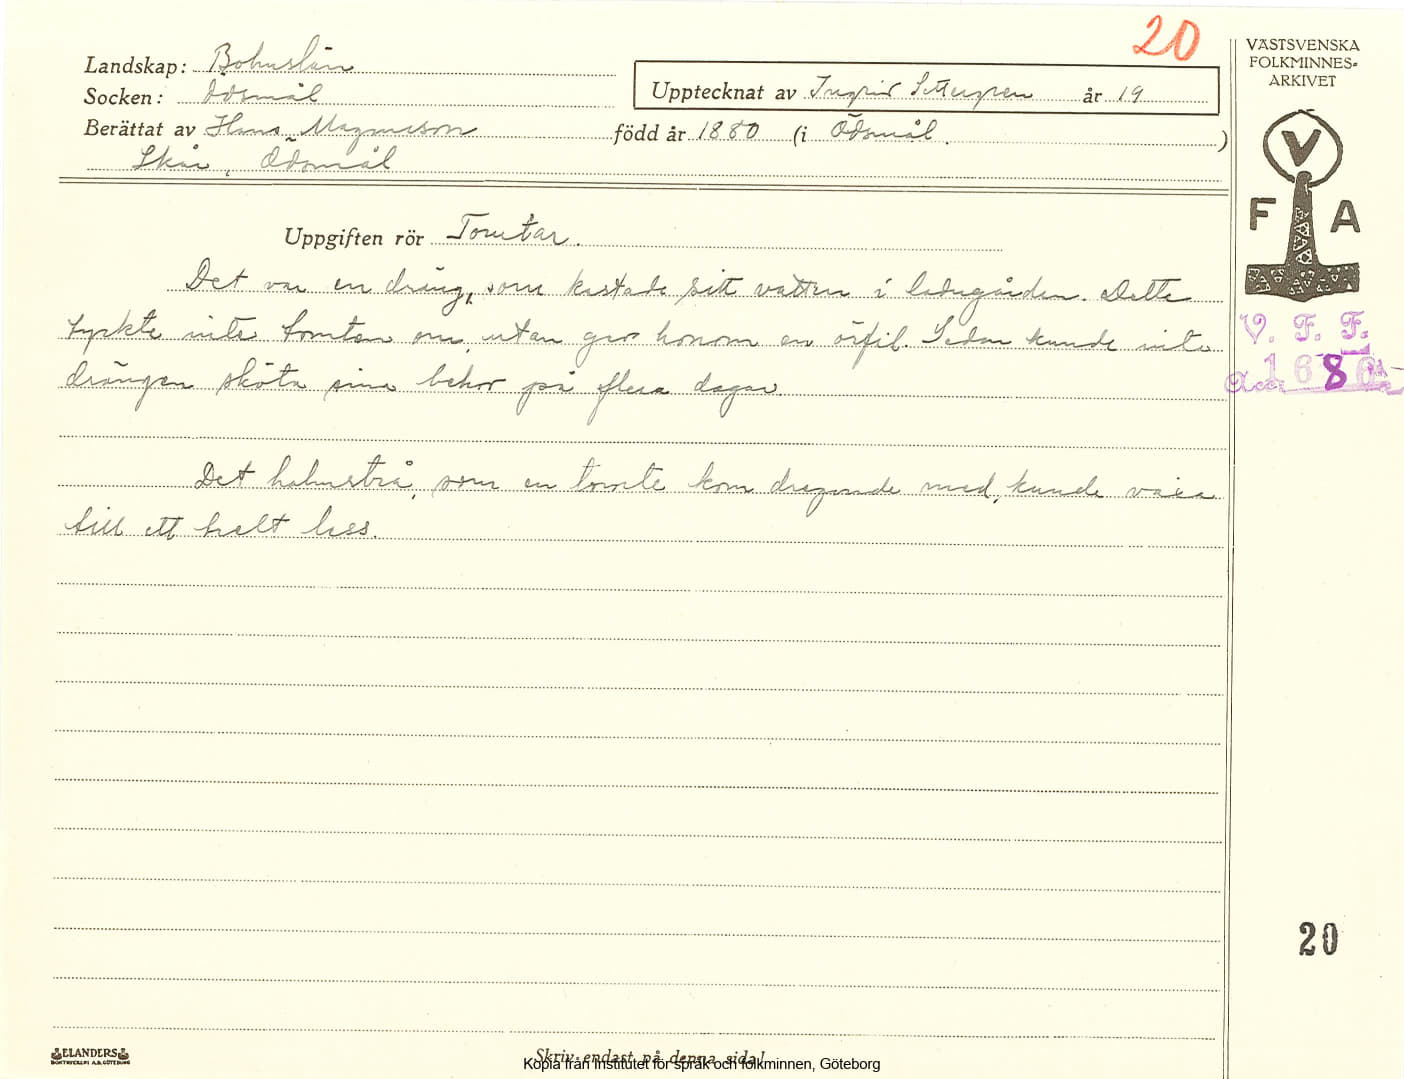 20
VÄSTSVENSKA
FOLKMINNES-
ARKIVET
Landskap: Bohuslän
Socken: Ödsmål
Upptecknat av Ingrid år 19
Berättat av Hans Magnusson född år 1880 (i Ödsmål.)
Skår, Ödsmål
V
F A
Uppgiften rör Tomtar.
Det var en dräng, som kastade sitt vatten i ladugården. Detta
tyckte inte tomten om, utan gav honom en örfil. Sedan kunde inte
drängen sköta sina behov på flera dagar.
V. F. F.
168
Det halmstrå, som en tomte kom dragande med, kunde växa
till ett helt lass.
20
ELANDERS
BOKTRYCKERI A.B. GÖTEBORG
Skriv endast på denna sida!
Kopia från Institutet för språk och folkminnen, Göteborg